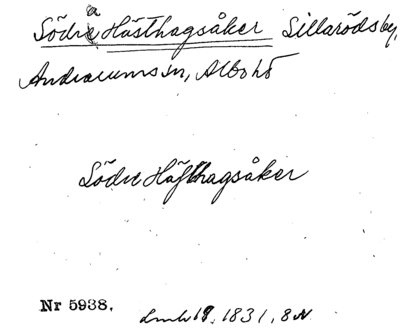 Södra Hästhagsåker Lillarödsby,
Andrarums sn, Albo hd
Södre Häfthagsåker
Nr 5938. Lmh 18. 1831, 8 N